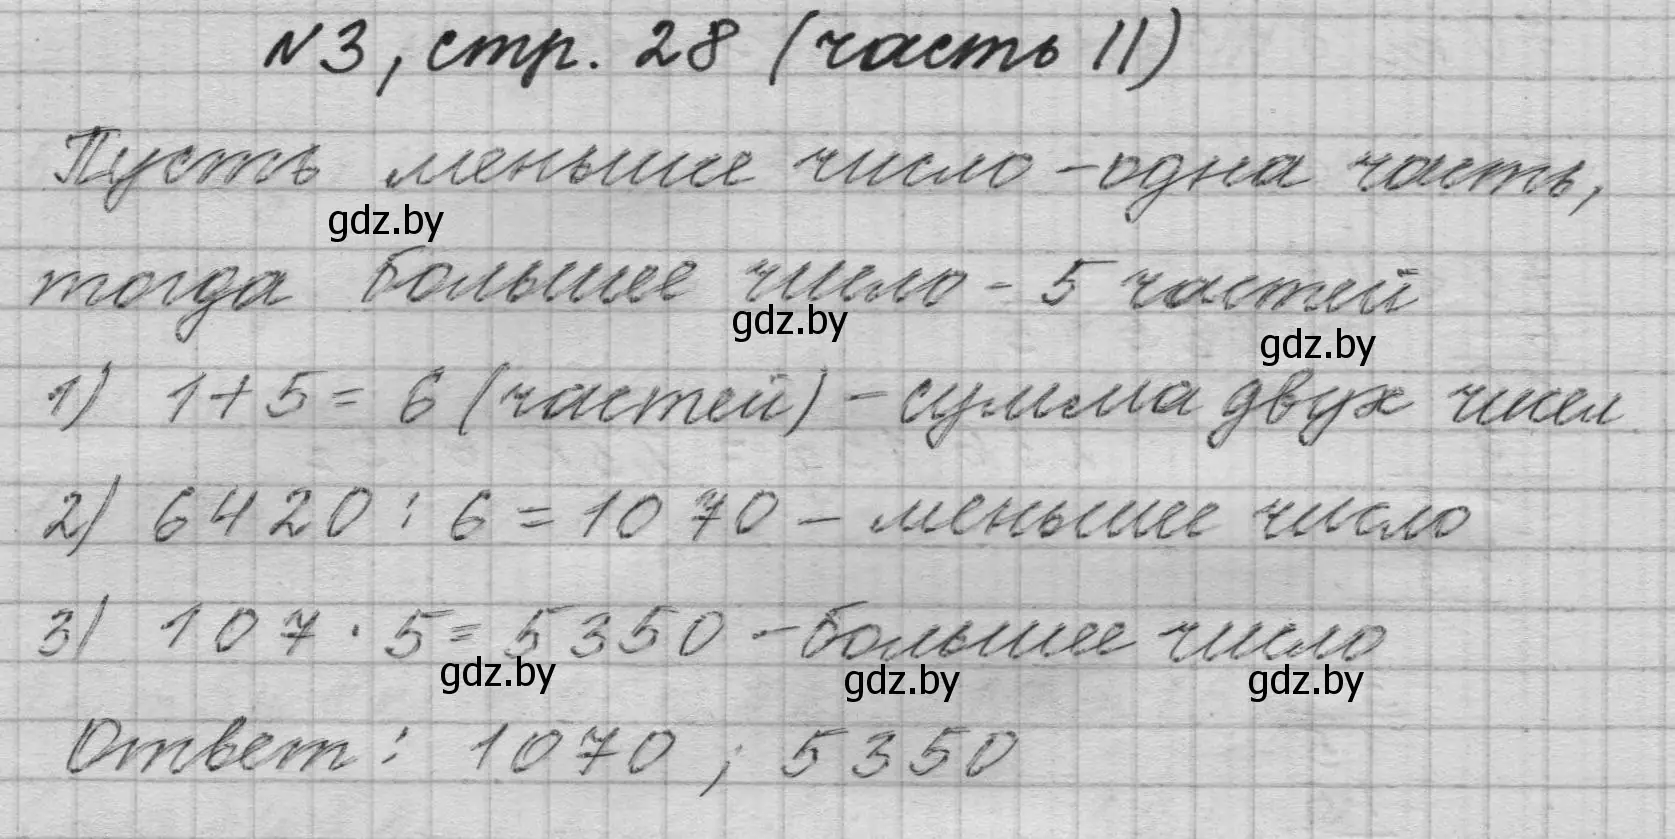 №3, стр. 28 (часть II)
Пусть меньшее число - одна часть,
gdz.by
тогда большее число - 5 частей
gdz.by
gdz.by
1) 1+5= 6 (частей) - сумма двух чисел
2) 6420 : 6 = 1070 - меньшее число
3) 107 · 5 = 5350 - большее число
gdz.by gdz.by gdz.by
Ответ: 1070 ; 5350